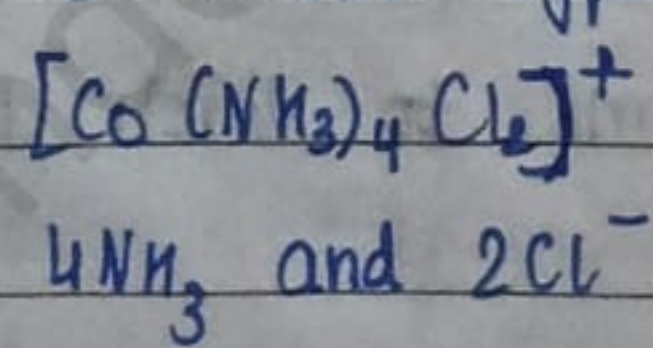 [Co (NH₃)₄ Cl₂]⁺
4NH₃ and 2Cl⁻